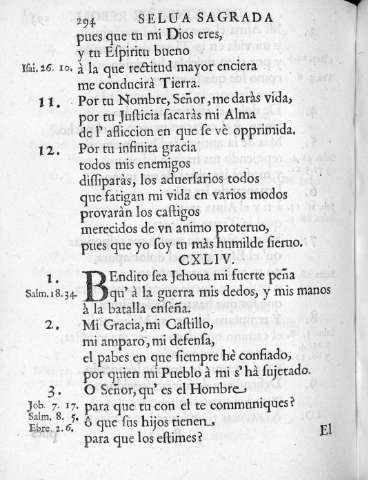 294 SELUA SAGRADA
pues que tu mi Dios eres,
y tu Eſpiritu bueno
Iſai. 26. 10. à la que rectitud mayor enciera
me conducirà Tierra.
11. Por tu Nombre, Señor, me daràs vida,
por tu Juſticia ſacaràs mi Alma
de l' afliccion en que ſe vè opprimida.
12. Por tu infinita gracia
todos mis enemigos
diſſiparàs, los adverſarios todos
que fatigan mi vida en varios modos
provaràn los caſtigos
merecidos de vn animo proteruo,
pues que yo ſoy tu màs humilde ſieruo.
CXLIV.
1. BEndito ſea Jehoua mi fuerte peña
Salm. 18. 34. qu' à la guerra mis dedos, y mis manos
à la batalla enſeña.
2. Mi Gracia, mi Caſtillo,
mi amparo, mi defenſa,
el pabes en que ſiempre hè confiado,
por quien mi Pueblo à mi s' hà ſujetado.
3. O Señor, qu' es el Hombre,
Job. 7. 17. para que tu con el te communiques?
Salm. 8. 5. ô que ſus hijos tienen,
Ebre. 2. 6. para que los eſtimes?
El